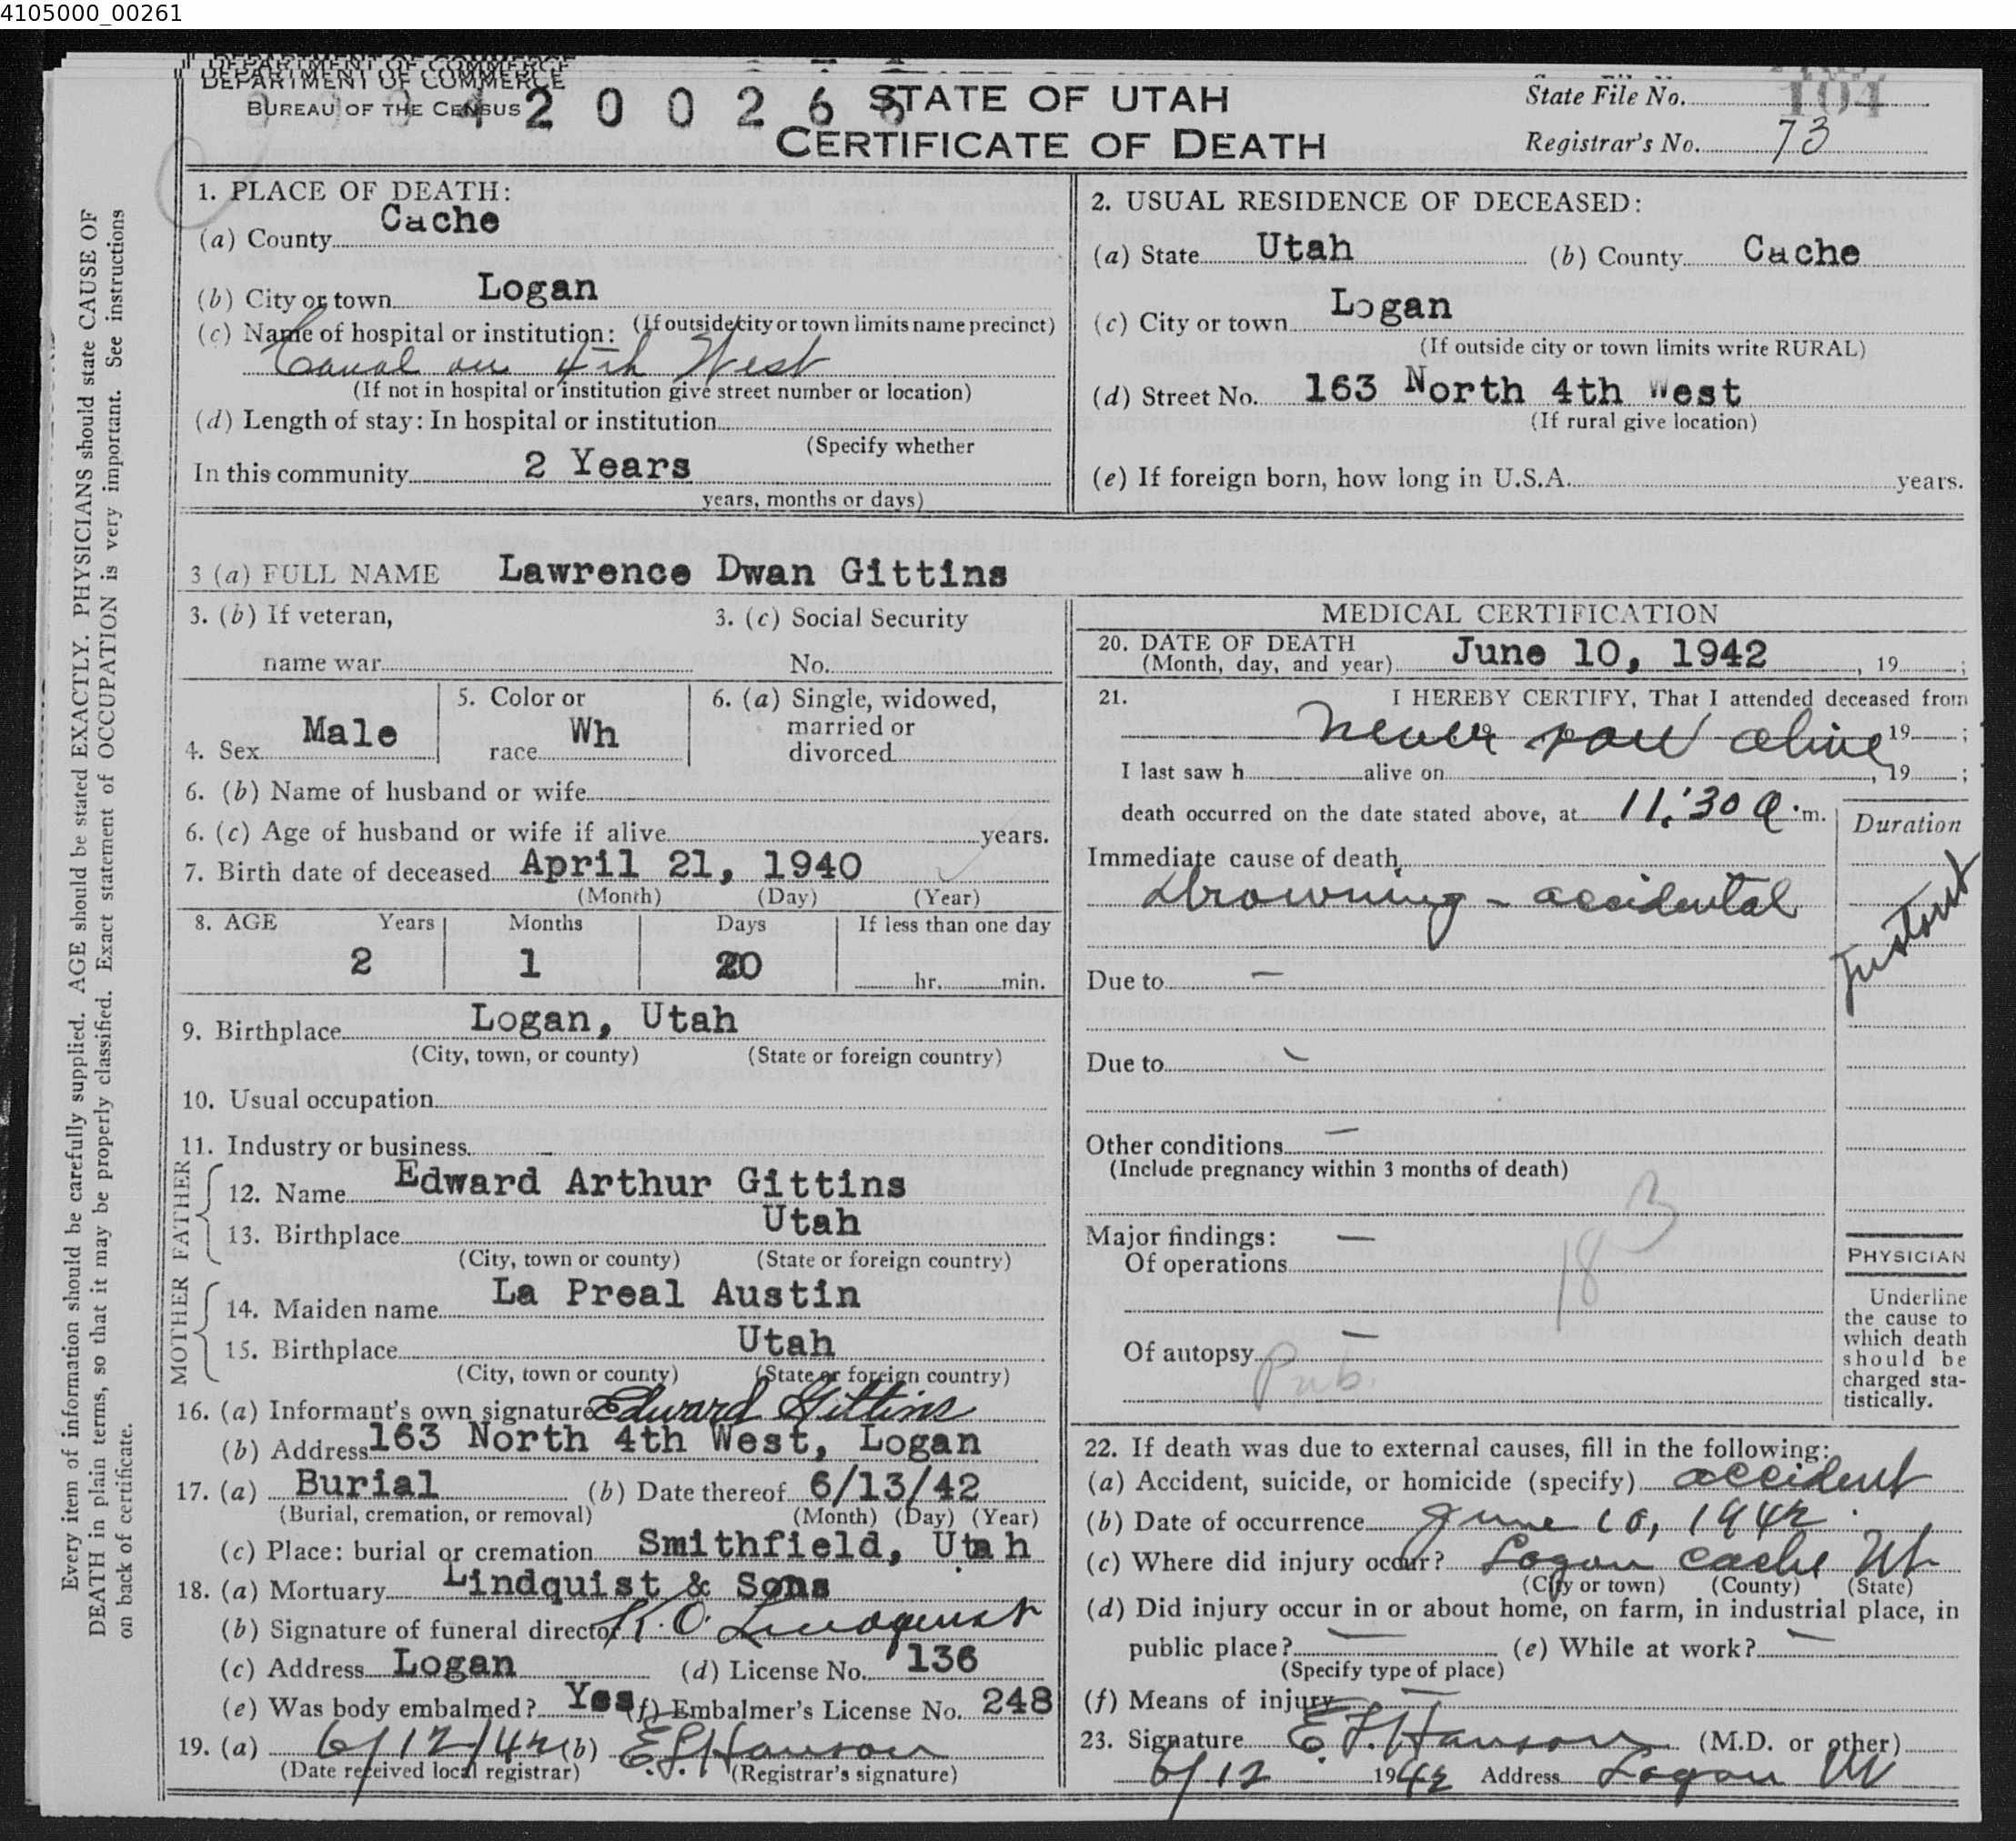 4105000_00261
DEPARTMENT OF COMMERCE
DEPARTMENT OF COMMERCE
BUREAU OF THE CENSUS
4 2 0 0 2 6
STATE OF UTAH
CERTIFICATE OF DEATH
State File No. 104
Registrar's No. 73
Every item of information should be carefully supplied. AGE should be stated EXACTLY. PHYSICIANS should state CAUSE OF
DEATH in plain terms, so that it may be properly classified. Exact statement of OCCUPATION is very important. See instructions
on back of certificate.
1. PLACE OF DEATH:
(a) County Cache
(b) City or town Logan
(If outside city or town limits name precinct)
(c) Name of hospital or institution:
Canal on 4th West
(If not in hospital or institution give street number or location)
(d) Length of stay: In hospital or institution
(Specify whether
In this community 2 Years
years, months or days)
2. USUAL RESIDENCE OF DECEASED:
(a) State Utah (b) County Cache
(c) City or town Logan
(If outside city or town limits write RURAL)
(d) Street No. 163 North 4th West
(If rural give location)
(e) If foreign born, how long in U.S.A. years.
3 (a) FULL NAME Lawrence Dwan Gittins
3. (b) If veteran, 3. (c) Social Security
name war No.
4. Sex Male 5. Color or race Wh 6. (a) Single, widowed, married or divorced
6. (b) Name of husband or wife
6. (c) Age of husband or wife if alive years.
7. Birth date of deceased April 21, 1940
(Month) (Day) (Year)
8. AGE Years Months Days If less than one day
2 1 20 hr. min.
9. Birthplace Logan, Utah
(City, town, or county) (State or foreign country)
10. Usual occupation
11. Industry or business –
FATHER
12. Name Edward Arthur Gittins
13. Birthplace Utah
(City, town or county) (State or foreign country)
MOTHER
14. Maiden name La Preal Austin
15. Birthplace Utah
(City, town or county) (State or foreign country)
16. (a) Informant's own signature Edward Gittins
(b) Address 163 North 4th West, Logan
17. (a) Burial (b) Date thereof 6/13/42
(Burial, cremation, or removal) (Month) (Day) (Year)
(c) Place: burial or cremation Smithfield, Utah
18. (a) Mortuary Lindquist & Sons
(b) Signature of funeral director K. O. Lindquist
(c) Address Logan (d) License No. 136
(e) Was body embalmed? Yes (f) Embalmer's License No. 248
19. (a) 6/12/42 (b) E. L. Hanson
(Date received local registrar) (Registrar's signature)
MEDICAL CERTIFICATION
20. DATE OF DEATH
(Month, day, and year) June 10, 1942, 19 ;
21. I HEREBY CERTIFY, That I attended deceased from
never saw alive 19 ;
I last saw h alive on , 19 ;
death occurred on the date stated above, at 11:30 a. m.
Duration
Immediate cause of death
Drowning - accidental
Instant
Due to –
Due to –
Other conditions –
(Include pregnancy within 3 months of death)
183
Major findings: –
Of operations
Of autopsy –
Pub.
PHYSICIAN
Underline
the cause to
which death
should be
charged sta-
tistically.
22. If death was due to external causes, fill in the following:
(a) Accident, suicide, or homicide (specify) accident
(b) Date of occurrence June 10, 1942
(c) Where did injury occur? Logan Cache Ut
(City or town) (County) (State)
(d) Did injury occur in or about home, on farm, in industrial place, in
public place? – (e) While at work? –
(Specify type of place)
(f) Means of injury –
23. Signature E. L. Hanson (M.D. or other)
6/12 1942 Address Logan Ut